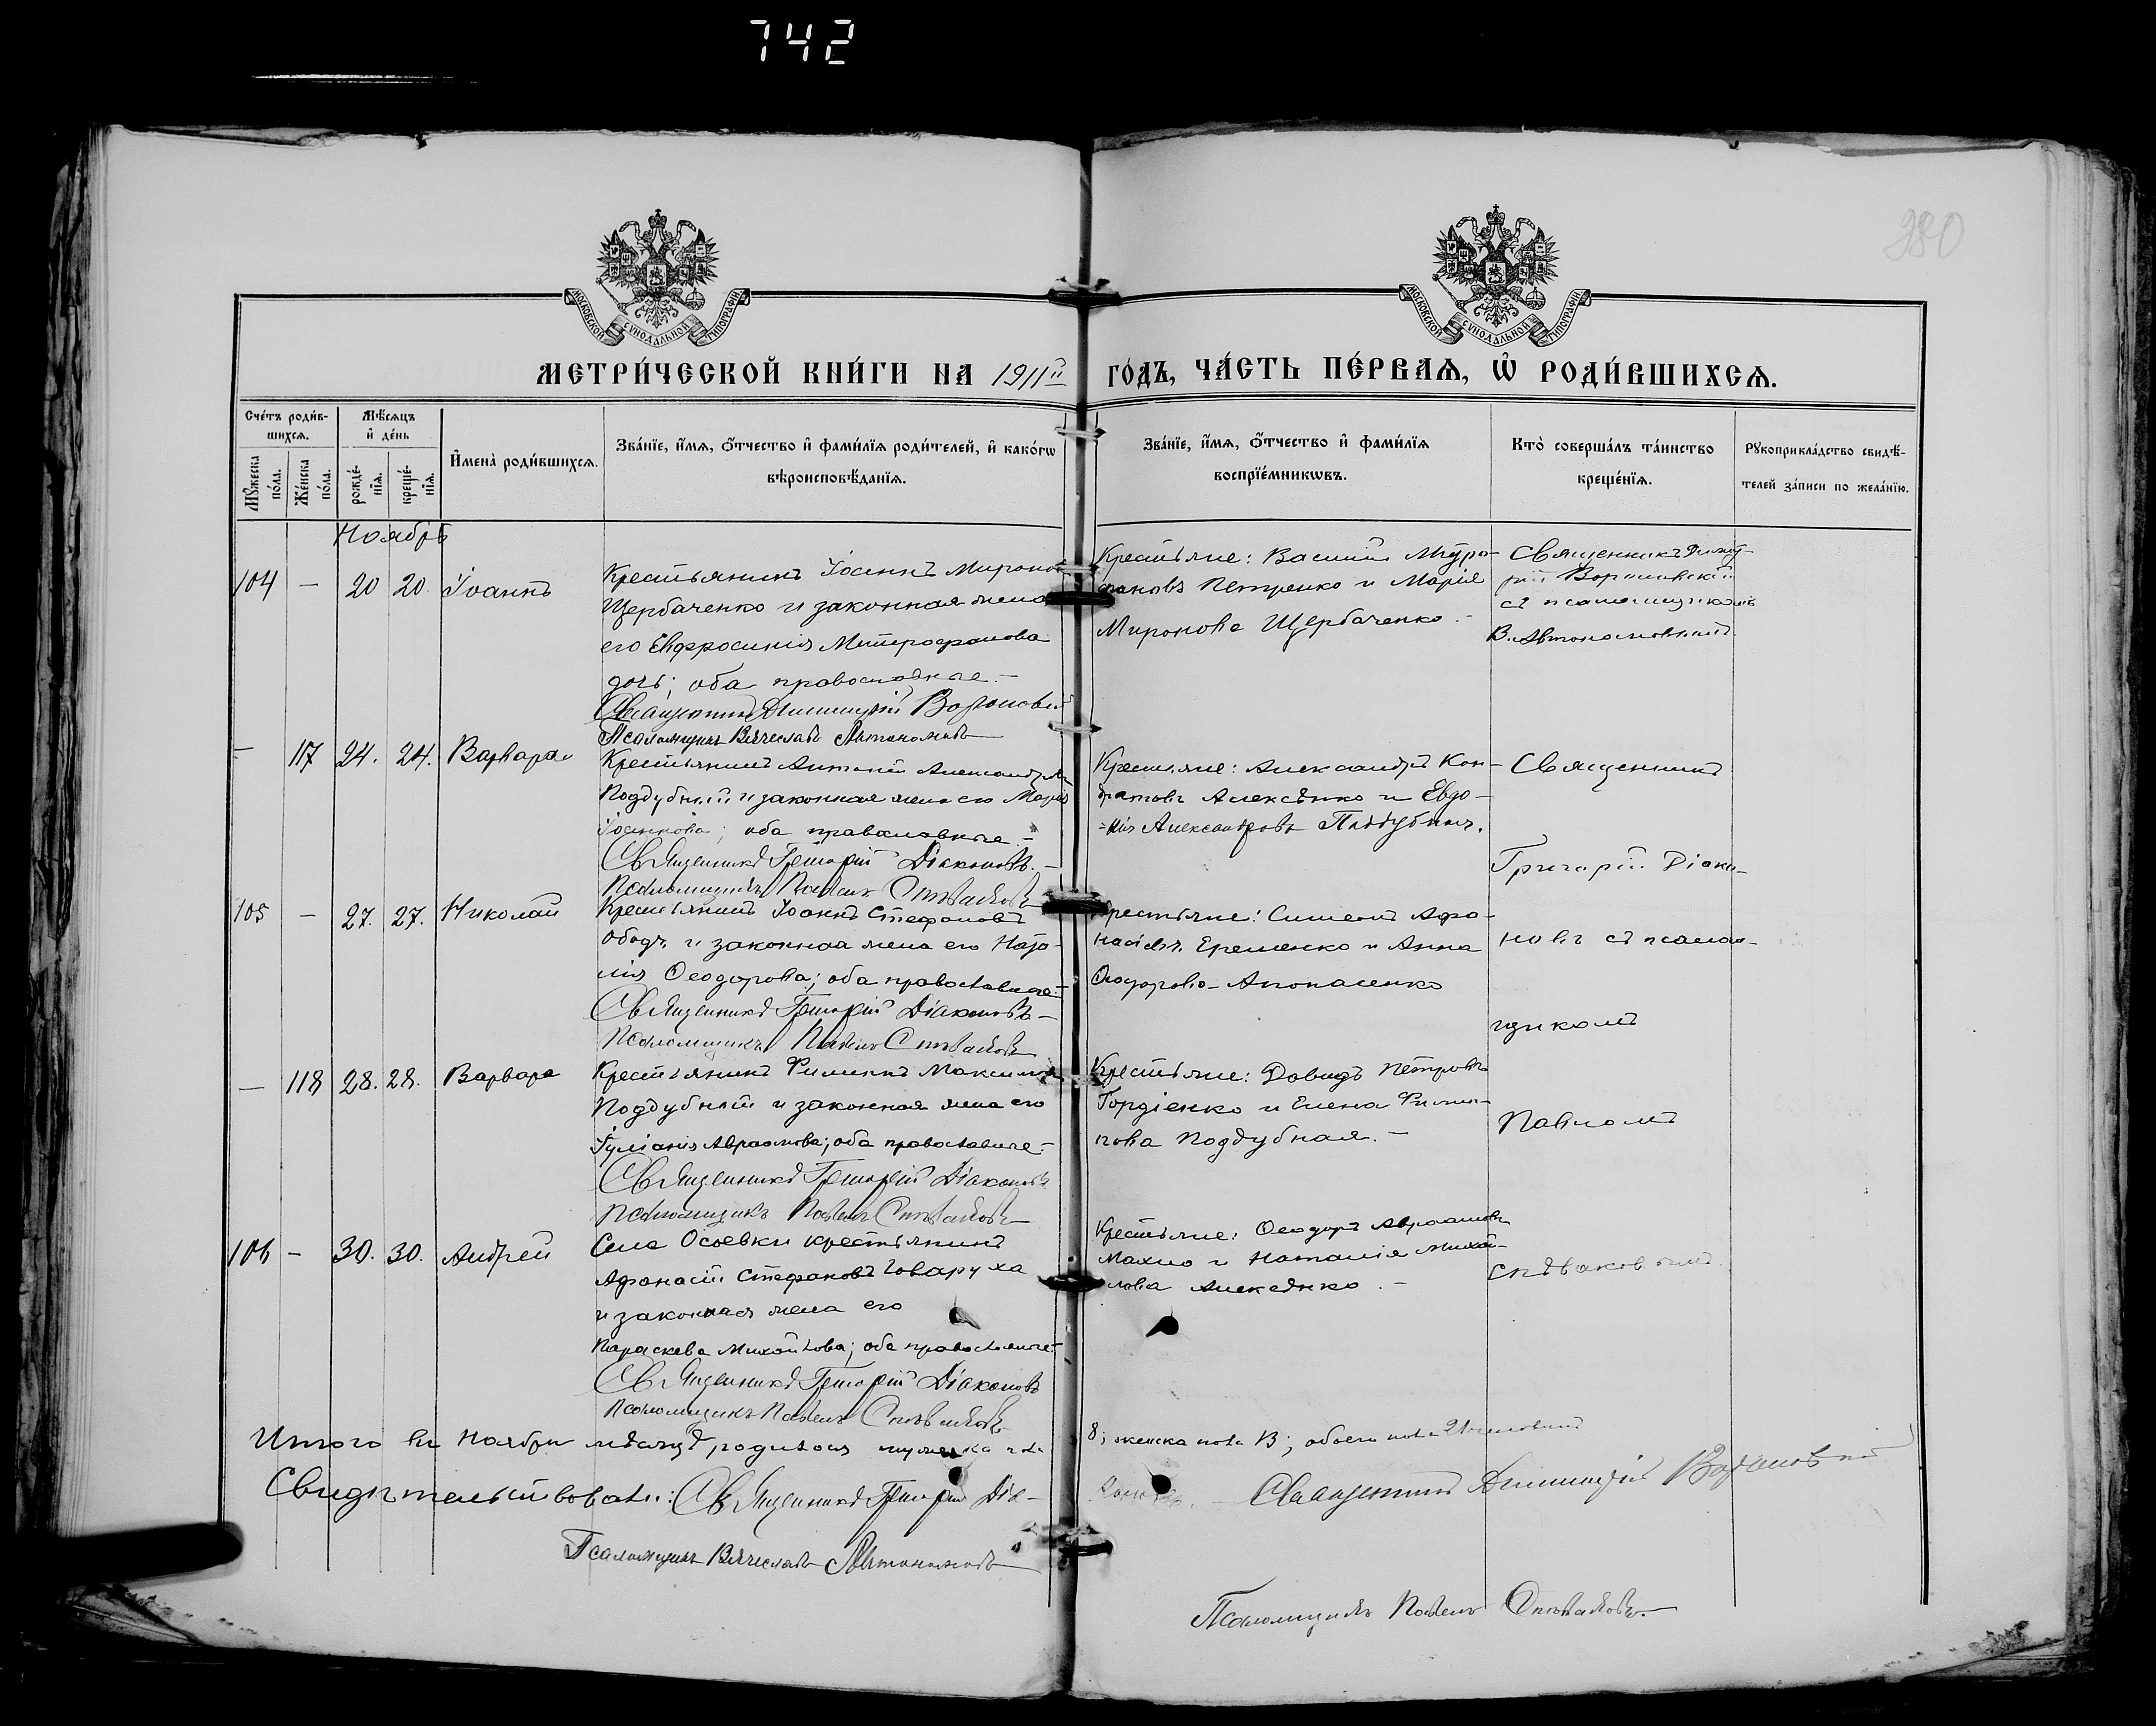 742
280
МОСКОВСКОЙ СѴНОДАЛЬНОЙ ТИПОГРАФІИ
МОСКОВСКОЙ СѴНОДАЛЬНОЙ ТИПОГРАФІИ
МЕТРИ́ЧЕСКОЙ КНИ́ГИ НА 1911й ГО́ДЪ, ЧА́СТЬ ПЕ́РВАѦ, Ѽ РОДИ́ВШИХСѦ.
Сче́тъ роди́в-
шихсѧ.
Мꙋ́жеска по́ла.
Же́нска по́ла.
Мѣ́сѧцъ и҆ де́нь
рожде́-
нїѧ.
креще́-
нїѧ.
И҆мена̀ роди́вшихсѧ.
Зва́нїе, и҆́мѧ, ѻ҆́тчество и҆ фами́лїѧ роди́телей, и҆ како́гѡ
вѣроисповѣ́данїѧ.
Зва́нїе, и҆́мѧ, ѻ҆́тчество и҆ фами́лїѧ
воспрїе́мникѡвъ.
Кто̀ соверша́лъ та́инство
креще́нїѧ.
Рꙋкоприкла́дство свидѣ́-
телей за́писи по жела́нїю.
Ноябрь
104 — 20 20. Іоаннъ
Крестьянинъ Іоаннъ Миронов
Щербаченко и законная жена
его Евфросинія Митрофанова
дочь; оба православные.—
Священникъ Димитрій
Псаломщикъ Вячеславъ Автономовъ
Крестьяне: Василій Митро-
фановъ Петренко и Марія
Миронова Щербаченко.—
Священникъ Димит-
рій
съ псаломщикомъ
В. Автономовымъ
— 117 24. 24. Варвара
Крестьянинъ Антоній Александр
Поддубный и законная жена его Марія
Іоаннова; оба православные.—
Священникъ Григорій Діаконовъ.—
Псаломщикъ Павелъ Спѣваковъ
Крестьяне: Александръ Кон-
дратовъ Алексѣнко и Евдо-
=кія Александрова Поддубная.
Священникъ
Григорій Діако-
105 — 27. 27. Николай
Крестьянинъ Іоаннъ Стефановъ
и законная жена его
Ѳеодорова; оба православные.—
Священникъ Григорій Діаконовъ—
Псаломщикъ Павелъ Спѣваковъ
Крестьяне: Симеонъ Афа-
насіевъ Еременко и Анна
Ѳеодорова Апонасенко
новъ съ псалом-
щикомъ
— 118 28. 28. Варвара
Крестьянинъ Филиппъ Максимов
Поддубный и законная жена его
Іуліанія Авраамова; оба православные.—
Священникъ Григорій Діаконовъ
Псаломщикъ Павелъ Спѣваковъ
Крестьяне: Давидъ Петровъ
Гордіенко и Елена Филип-
пова Поддубная.—
Павломъ
106 — 30. 30. Андрей
Села Осоевки крестьянинъ
Афанасій Стефановъ Товаруха
и законная жена его
Параскева Михайлова; оба православные.
Священникъ Григорій Діаконовъ
Псаломщикъ Павелъ Спѣваковъ
Крестьяне: Ѳеодоръ Авраамовъ
Махно и Наталія Михай-
лова Алексѣнко.—
Спѣваковымъ
Итого въ Ноябрѣ мѣсяцѣ родилось мужеска пола 8; женска пола 13; обоего пола 21 человѣкъ
Свидѣтельствовали: Священникъ Григорій Діа-
Священникъ Димитрій
Псаломщикъ Вячеславъ Автономовъ
Псаломщикъ Павелъ Спѣваковъ.—